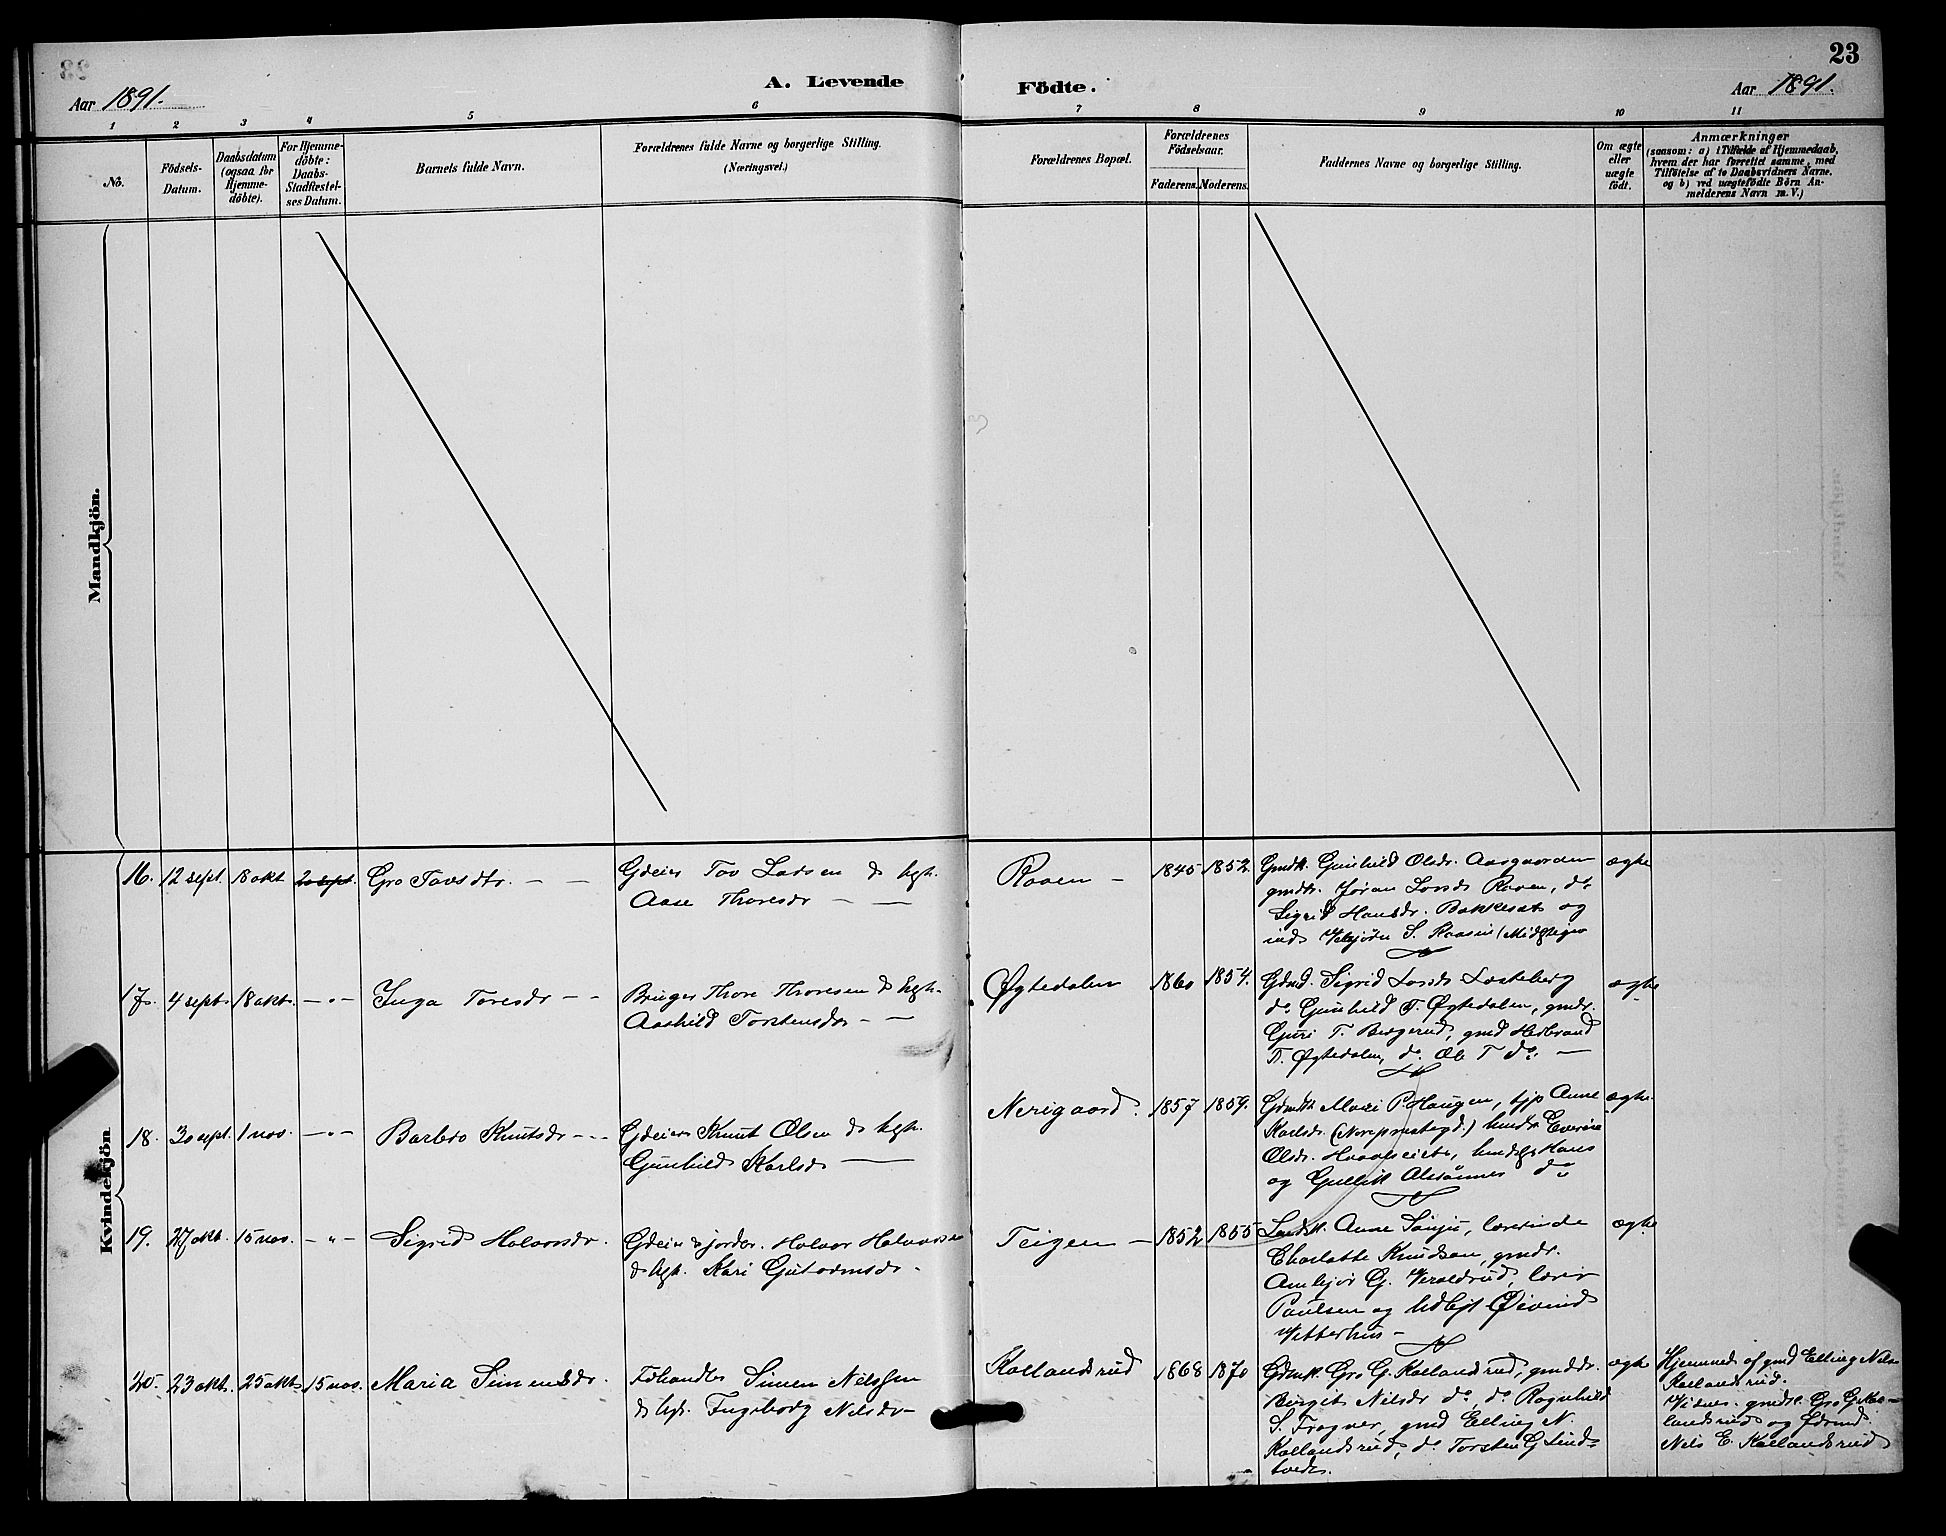 23
Aar 1891.
A. Levende Födte.
Aar 1891.
1 2 3 4 5 6 7 8 9 10 11
No.
Födsels-Datum.
Daabsdatum (ogsaa for Hjemme-döbte).
For Hjemme-döbte: Daabs-Stadfæstel-ses Datum.
Barnets fulde Navn.
Forældrenes fulde Navne og borgerlige Stilling.
(Næringsvei.)
Forældrenes Bopæl.
Forældrenes Födselsaar.
Faderens. Moderens.
Faddernes Navne og borgerlige Stilling.
Om ægte eller uægte födt.
Anmærkninger
(saasom: a) i Tilfælde af Hjemmedaab,
hvem der har forrettet samme, med
Tilföielse af to Daabsvidners Navne.
og b) ved uægtefödte Börn An-
melderens Navn m. V.)
Mandkjön.
Kvindekjön
16. 12 sept. 18 okt 20 sept. Gro Tovsdtr. — —
Gdeier Tov Larsen & hgh.
Aase Thoresdr — —
Raaen — 1845 1852
Gmdk. Gunhild Olsdr. Aasgaarden
gmdtr. Jøran Larsdr Raaen, do
Sigrid Hansdr. Bakkesat og
ægte
17. 4 sept. 18 okt. — " — Inga Toresdr — —
Bruger Thore Thoresen & hgh.
Aashild Torstensdr — —
Øgtedalen 1860 1854.
Gdmd. Sigrid Larsdr
do Gunhild T. Øgtedalen, gmdr.
Guri T. Bergerud, gmd Herbrand
T. Øgtedalen, do. Ole T do. —
ægte
18. 30 sept. 1 nov. — " — Barbro Knutsdr — —
Gdeier Knut Olsen & hgh.
Gunhild Karlsdr —
Nerigaard. 1857 1859.
Gdmdk Mari P. Haugen, tjp Anne
Karlsdr. (Noreprestegd.)
Olsdr.
og Gullik do
ægte.
19. 27 okt. 15 nov. — " — Sigrid Halvorsdr.
Gdeier & jordm. Halvor Halvorsen
& hgh. Kari Gutormsdr.
Teigen — 1852 1855
Anne lærerinde
Charlotte Knudsen, gmdr.
G. lærer
Paulsen og Øivind
Vetterhus —
ægte
20. 23 okt. 25 okt. 15 nov. Maria Simensdr.
Fehandler Simen Nilssen
& hgh. Ingeborg Nilsdr —
Kollandsrud 1868 1870
Gdmk. Gro G. Kollandsrud, gmddr.
Birgit Nilsdr do, do Ragnhild
S. Frogner, gmd Elling N.
Kollandsrud, do Torsten G Lind-
ægte
Hjemmed. af gmd Elling Nils.
Kollandsrud.
Vidner. gmdk. Gro G. Kol-
landsrud og
Nils E. Kollandsrud